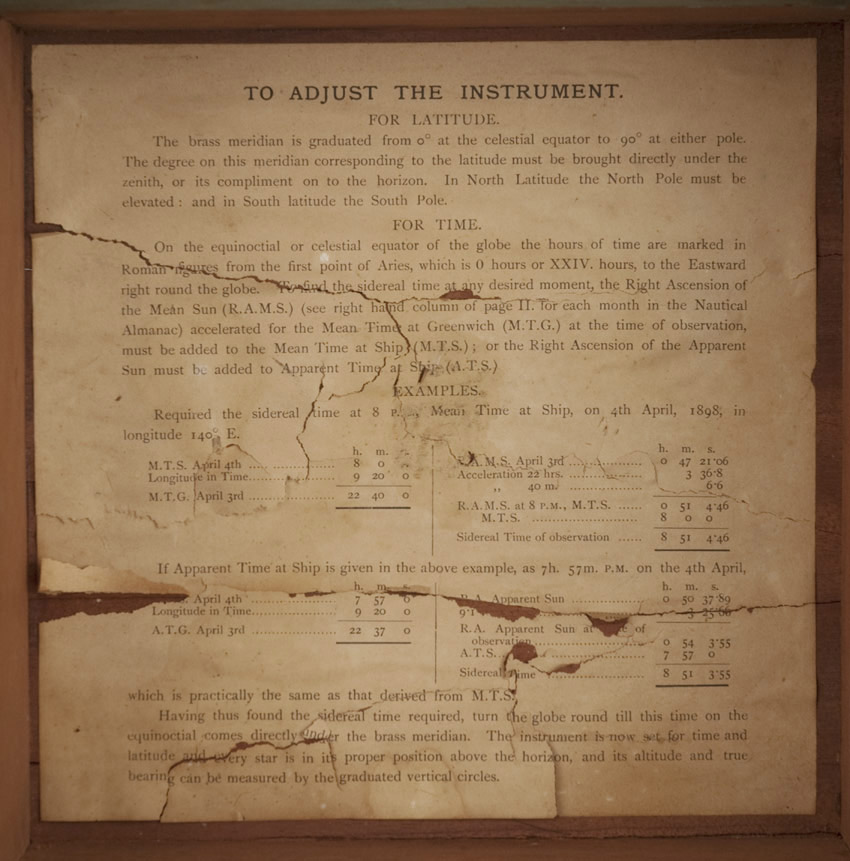 TO ADJUST THE INSTRUMENT.
FOR LATITUDE.
The brass meridian is graduated from 0° at the celestial equator to 90° at either pole.
The degree on this meridian corresponding to the latitude must be brought directly under the
zenith, or its compliment on to the horizon. In North Latitude the North Pole must be
elevated: and in South latitude the South Pole.
FOR TIME.
On the equinoctial or celestial equator of the globe the hours of time are marked in
Roman figures from the first point of Aries, which is 0 hours or XXIV. hours, to the Eastward
right round the globe. To find the sidereal time at any desired moment, the Right Ascension of
the Mean Sun (R.A.M.S.) (see right hand column of page II. for each month in the Nautical
Almanac) accelerated for the Mean Time at Greenwich (M.T.G.) at the time of observation,
must be added to the Mean Time at Ship (M.T.S.); or the Right Ascension of the Apparent
Sun must be added to Apparent Time at Ship (A.T.S.)
EXAMPLES.
Required the sidereal time at 8 P. Mean Time at Ship, on 4th April, 1898, in
longitude 140° E.
h. m.
M.T.S. April 4th .................. 8 0
Longitude in Time .................. 9 20 0
M.T.G. April 3rd .................. 22 40 0
h. m. s.
R.A.M.S. April 3rd .................. 0 47 21·06
Acceleration 22 hrs. .................. 3 36·8
,, 40 m. .................. 6·6
R.A.M.S. at 8 P.M., M.T.S. ...... 0 51 4·46
M.T.S. .................. 8 0 0
Sidereal Time of observation ...... 8 51 4·46
If Apparent Time at Ship is given in the above example, as 7h. 57m. P.M. on the 4th April,
h. m. s.
April 4th .................. 7 57 0
Longitude in Time .................. 9 20 0
A.T.G. April 3rd .................. 22 37 0
h. m. s.
R.A. Apparent Sun .................. 0 50 37·89
9·1 .................. 3 25·66
R.A. Apparent Sun at of
observation .................. 0 54 3·55
A.T.S. .................. 7 57 0
Sidereal Time .................. 8 51 3·55
which is practically the same as that derived from M.T.S.
Having thus found the sidereal time required, turn the globe round till this time on the
equinoctial comes directly under the brass meridian. The instrument is now set for time and
latitude and every star is in its proper position above the horizon, and its altitude and true
bearing can be measured by the graduated vertical circles.